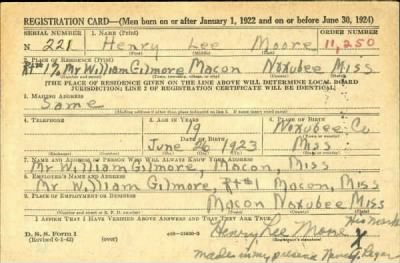 REGISTRATION CARD—(Men born on or after January 1, 1922 and on or before June 30, 1924)
SERIAL NUMBER 1. NAME (Print) ORDER NUMBER
N 221 Henry Lee Moore 11,250
2. PLACE OF RESIDENCE (Print)
Rt#1 % Mr William Gilmore Macon Noxubee Miss
[THE PLACE OF RESIDENCE GIVEN ON THE LINE ABOVE WILL DETERMINE LOCAL BOARD
JURISDICTION; LINE 2 OF REGISTRATION CERTIFICATE WILL BE IDENTICAL]
3. MAILING ADDRESS
Same
4. TELEPHONE 5. AGE IN YEARS 6. PLACE OF BIRTH
19 Noxubee Co
DATE OF BIRTH
June 26 1923 Miss
7. NAME AND ADDRESS OF PERSON WHO WILL ALWAYS KNOW YOUR ADDRESS
Mr William Gilmore, Macon, Miss
8. EMPLOYER'S NAME AND ADDRESS
Mr William Gilmore, Rt#1 Macon, Miss
9. PLACE OF EMPLOYMENT OR BUSINESS
Macon Noxubee Miss
I AFFIRM THAT I HAVE VERIFIED ABOVE ANSWERS AND THAT THEY ARE TRUE.
His mark
D. S. S. Form 1 Henry Lee Moore X
(Revised 6-1-42) (over) (Registrant's signature)
made in my presence